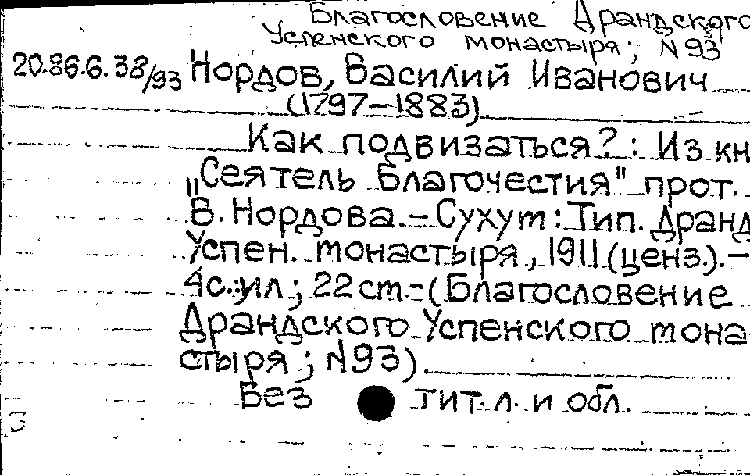 Благословение Драндского
Успенского монастыря; N93
20.86.6.38/93 Нордов, Василий Иванович
(1797-1883)
Как подвизаться?: Из кн
"Сеятель благочестия" прот.
В. Нордова.-Сухум: Тип. Дранд
Успен. монастыря, 1911.(ценз.).-
4с.:ил; 22см.-(Благословение
Драндского Успенского мона
стыря; N93)
Без тит.л. и обл.